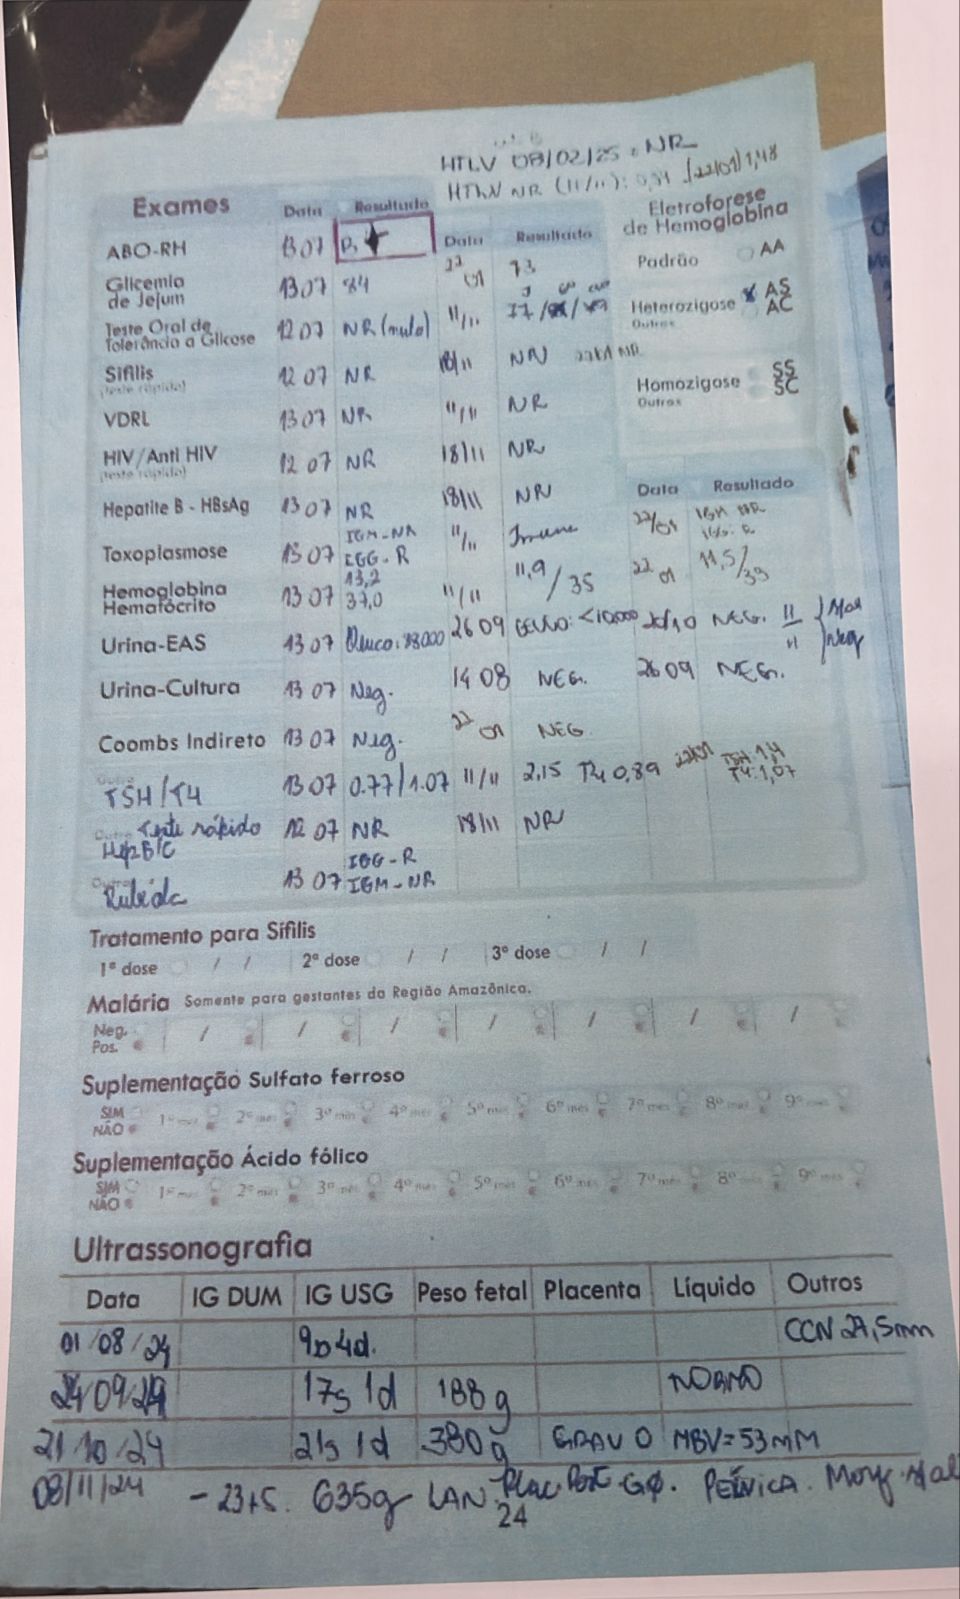 HTLV 08/02/25: NR
HTLV NR (11/11): 0,94 (22/01) 1,48
Exames Data Resultado
Eletroforese
de Hemoglobina
ABO-RH 13 07 B+ Data Resultado
Padrão AA
Glicemia
de Jejum 13 07 84 22 01 73
Heterozigose AS
AC
Outros
Teste Oral de
Tolerância a Glicose 12 07 NR 11/11
Sífilis
(teste rápido) 12 07 NR 18/11 NR 22/01 NR
Homozigose SS
SC
Outros
VDRL 13 07 NR 11/11 NR
HIV/Anti HIV
(teste rápido) 12 07 NR 18/11 NR
Data Resultado
Hepatite B - HBsAg 13 07 NR 18/11 NR
Toxoplasmose 13 07 IGM-NR
IGG-R 11/11 Imune 22/01 IGM NR
IGG: R
Hemoglobina
Hematócrito 13 07 13,2
37,0 11/11 11,9/35 22 01 11,5/
Urina-EAS 13 07 26 09 <10.000 NEG. 11/11
Urina-Cultura 13 07 Neg. 14 08 NEG. 26 09 NEG. Neg
Coombs Indireto 13 07 Neg. 22 01 NEG
Outro TSH/T4 13 07 0.77/1.07 11/11 2,15 T4 0,89 22/01 TSH: 1,4
T4: 1,07
Outro Teste rápido
Hep B/C 12 07 NR 18/11 NR
Outro Rubéola 13 07 IGG-R
IGM-NR
Tratamento para Sífilis
1ª dose / / 2ª dose / / 3ª dose / /
Malária Somente para gestantes da Região Amazônica.
Neg.
Pos. / / / / / / /
Suplementação Sulfato ferroso
SIM
NÃO 1º mês 2º mês 3º mês 4º mês 5º mês 6º mês 7º mês 8º mês 9º mês
Suplementação Ácido fólico
SIM
NÃO 1º mês 2º mês 3º mês 4º mês 5º mês 6º mês 7º mês 8º mês 9º mês
Ultrassonografia
Data IG DUM IG USG Peso fetal Placenta Líquido Outros
01/08/24 9s4d. CCN 27,5mm
24/09/24 17s 1d 188g
21/10/24 21s 1d 380g GRAU 0 MBV=53MM
08/11/24 - 23+5. 635g LAN. Plac. Post G0. PÉLVICA. Morf.
24